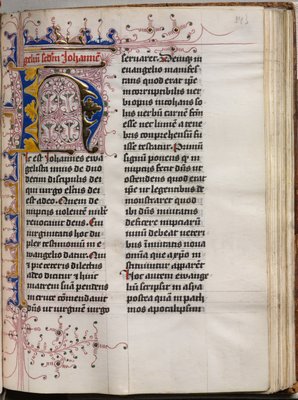 geliū scdm Johannē
H
ic est Johannes ewā
gelista unus de duo
decim discipulis dei
qui virgo electus dei
est adeo. Quem de
nuptiis volentē nube
revocavit deus. Cui
virginitatis hoc du
plex testimoniū in e
vangelio datur. Qui
et pre ceteris dilectus
adeo dicitur et huic
matrem suā pendens
in cruce cōmendavit
dn̄s ut virginē virgo
servaret. Deniq; in
evangelio manifes
tans quod erat ip̄e
incorruptibilis ver
bi opus inchoans so
lus verbū carnē fcm̄
esse nec lumē a tene
bris comprehensū fu
isse testatur. Primū
signū ponens qd̄ in
nuptiis fecit dn̄s ut
ostendens quod erat
ip̄e ut legentibus de
monstraret quod
ubi dn̄s invitatus
deficere nuptiarū
vinū debeat veteri
bus īmutatis nova
omnia que a xp̄o in
stituuntur appareāt
Hoc autem ewange
liū scripsit in asya
postea quā in path
mos apocalipsim